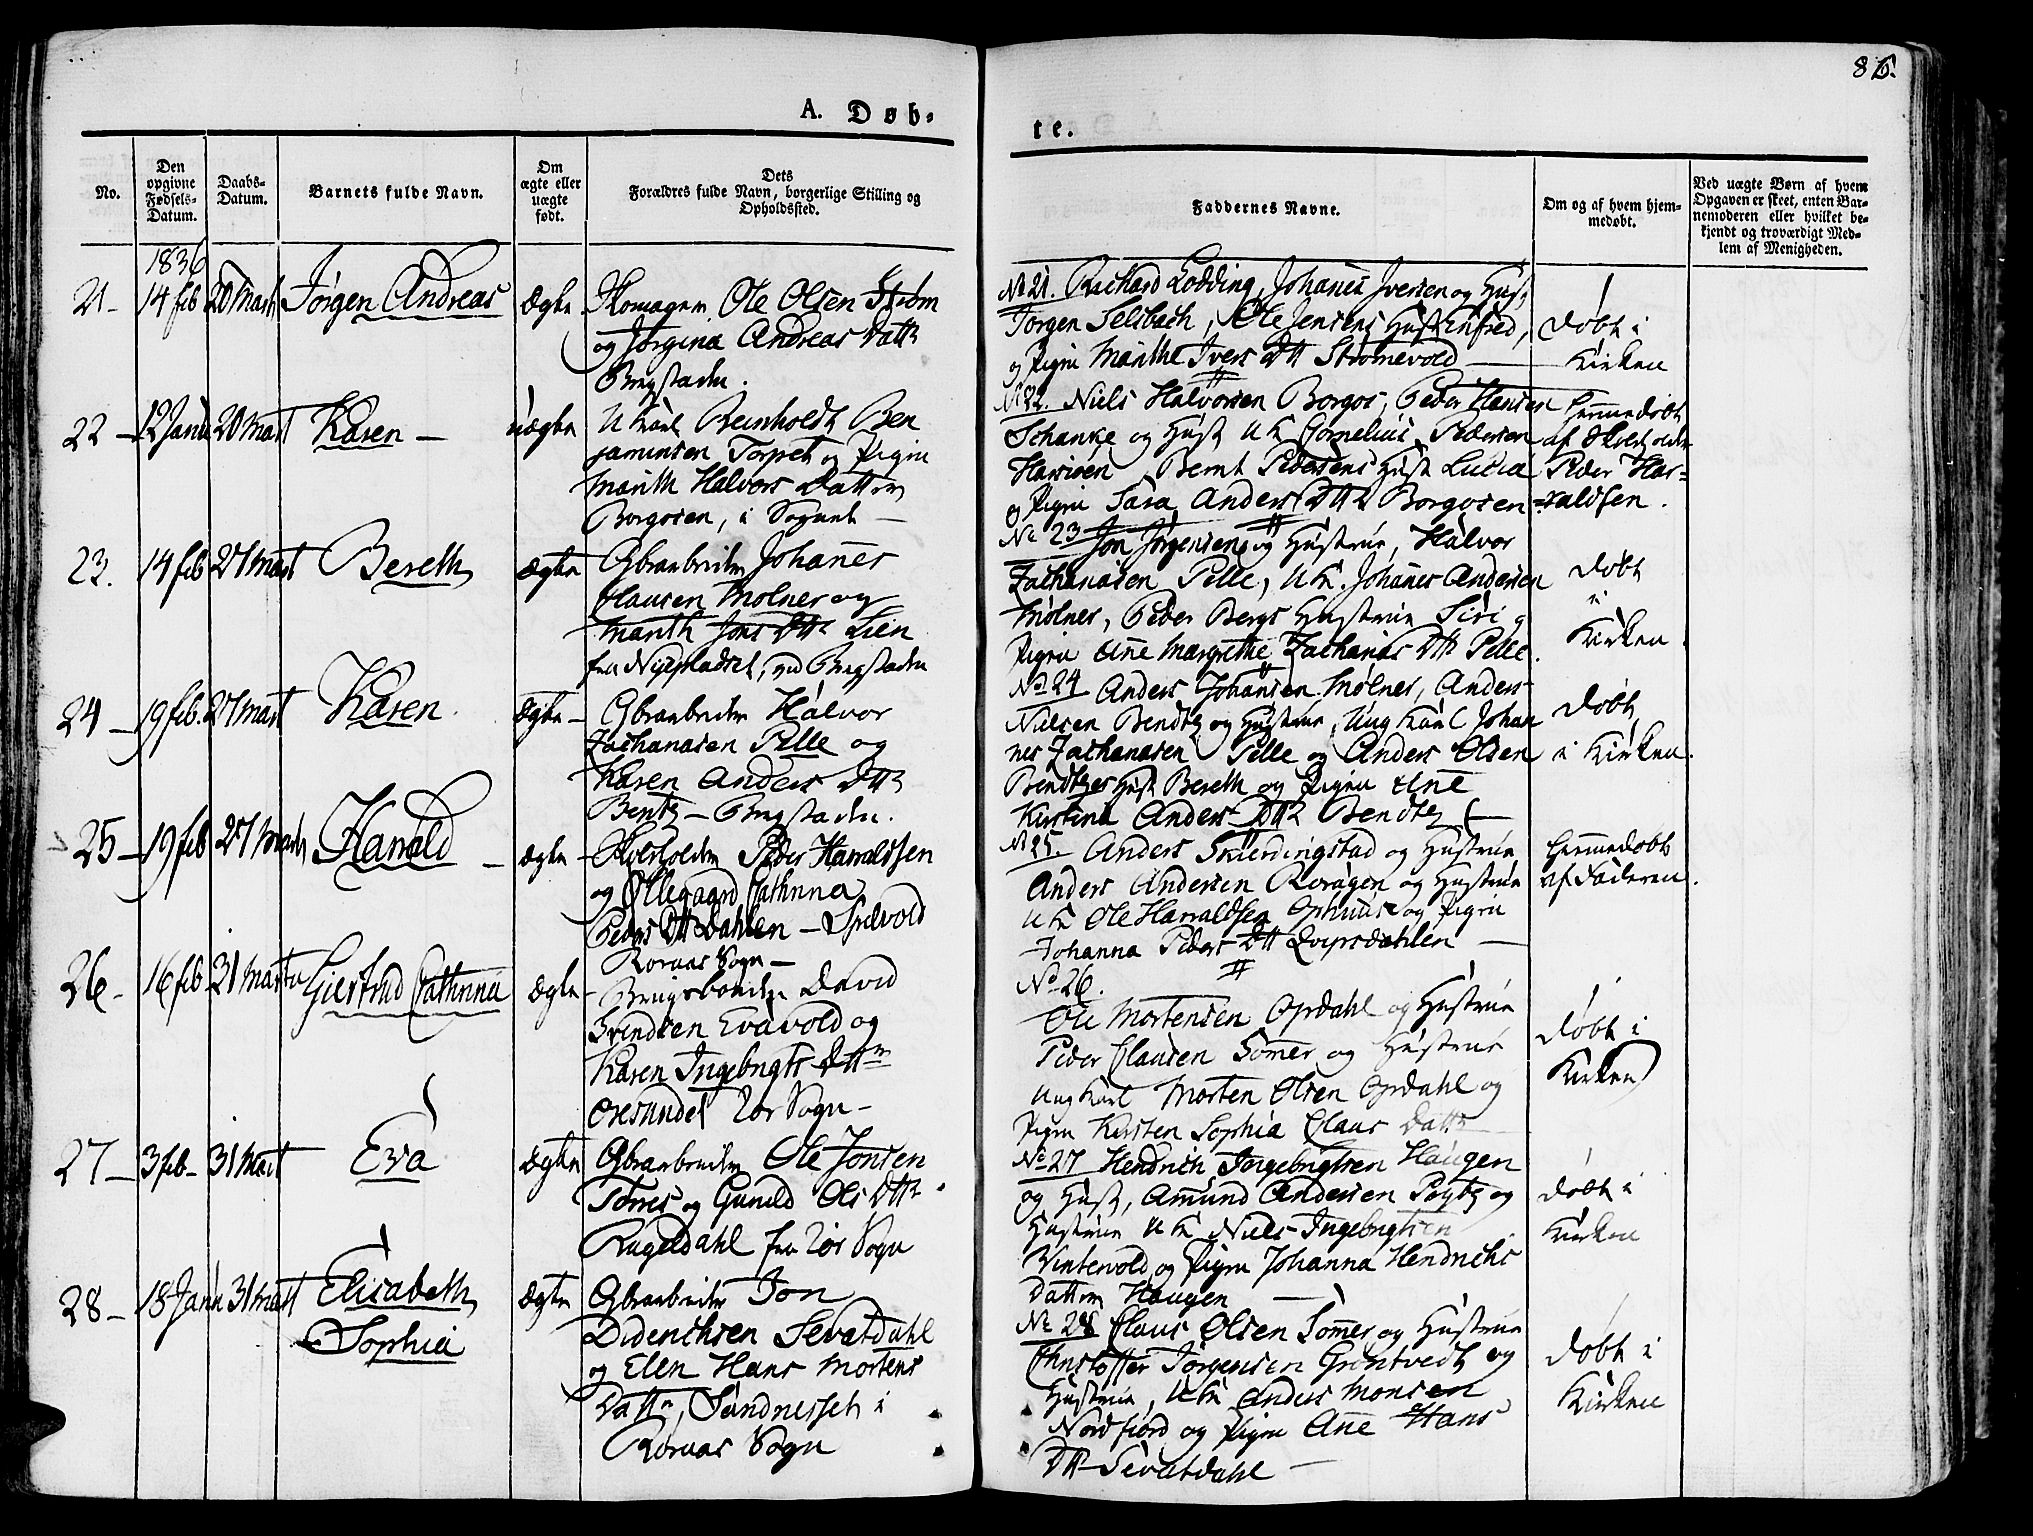 86.
A. Døb-
te.
No.
Den opgivne Fødsels-Datum.
Daabs-Datum.
Barnets fulde Navn.
Om ægte eller uægte født.
Dets Forældres fulde Navn, borgerlige Stilling og Opholdssted.
Faddernes Navne.
Om og af hvem hjem-medøbt.
Ved uægte Børn af hvem Opgaven er skeet, enten Bar-nemoderen eller hvilket be-kjendt og troværdigt Med-lem af Menigheden.
1836
21 - 14 feb 20 Marts Jörgen Andreas Ægte
Skomager Ole Olsen Ström
og Jörgina Andreas Datt
Bergstaden.
No 21. Richard Lödding, Johanes Iversen og Hust
Jörgen Selsbach, Ole Jensens Hust
og Pigen Marithe Ivers Dtt Strömevold
döbt i
Kirken
22 - 12 Janu 20 Mart Karen - Uægte
U karl Reinholdt Ben
jaminsen Torpet og Pigen
Marith Halvors Datter
Borgosen, i Sognet -
No 22. Niels Halvorsen Borgos, Peder Hansen
Schanke og Hust U K Cornelius Pedersen
Bernt Pedersens Hust Lucia
og Pigen Sara Anders Dtt Borgosen
hiemmedöbt
af
Peder Har-
raldsen.
23. 14 feb 27 Mart Bereth Ægte
Grbarbeider Johanes
Clausen Molnes og
Marith Jons Dtt Lien
fra Nyepladset, ved Bergstaden
No 23 Jon Jörgensen og Hustrue, Halvor
Zachariasen Pelle, U K. Johanes Andersen
Mölnes, Peder Bergs Hustrue Siri og
Pigen Ane Margrethe Zacharias Dtt Pelle.
döbt
i
Kirken.
24 - 19 feb. 27 Mart Karen. Ægte -
Grbarbeider Halvor
Zachariasen Pelle og
Karen Anders Dtt
Bentz - Bergstaden.
No 24 Anders Johansen Mölnes, Anders
Nielsen Bendtz og Hustrue, Ung Karl Johan
nes Zachariasen Pelle og Anders Olsen
Bendtzes Hust Bereth og Pigen Ane
Kirstina Anders Dtt Bendtz
döbt
i Kirken.
25 - 19 feb 27 Marts Harrald - Ægte
Peder Harraldssen
og Ollegaard Cathrina
Peders Dtt Dahlen -
Roraas Sogn -
No 25. Anders Skierdingstad og Hustrue
Anders Andersen Rorågen og Hustrue
U K Ole Harraldsen og Pigen
Johanna Peders Dtt
hiemmedöbt
af Faderen.
26 - 16 feb 31 Marts Giertrud Cathrina Ægte
David
Svendsen Evavold og
Karen Ingebrigts Dtt
Oresundet Sogn -
No 26.
Ole Mortensen Opdahl og Hustrue
Peder Clausen Somer og Hustrue
Ung Karl Morten Olsen Opdahl og
Pigen Kirsten Sophia Claus Datt
döbt i
Kirken
27 - 3 feb - 31 Mart Eva Ægte
Grbarbeider Ole Jonsen
Torres og Gunild Ols Dtt
Rugeldahl fra Sogn
No 27 Hendrich Ingebrigtsen Haugen
og Hust, Amund Andersen og
Hustrue U K Niels Ingebrigtsen
Vintervold og Pigen Johanna Hendrichs
Datter Haugen -
döbt i
Kirken
28 - 18 Janu 31 Mart Elisabeth Sophia Ægte
Grbarbeider Jon
Diderichsen Sevatdahl
og Elen Hans Mortens
Datter, Sandnesset i
Roraas Sogn
No 28 Claus Olsen Somer og Hustrue
Christoffer Jörgensen Gröntvedt og
Hustrue, U K Anders Monsen
Nordfiord og Pigen Ane Hans
Dtt Sevatdahl -
döbt i
Kirken